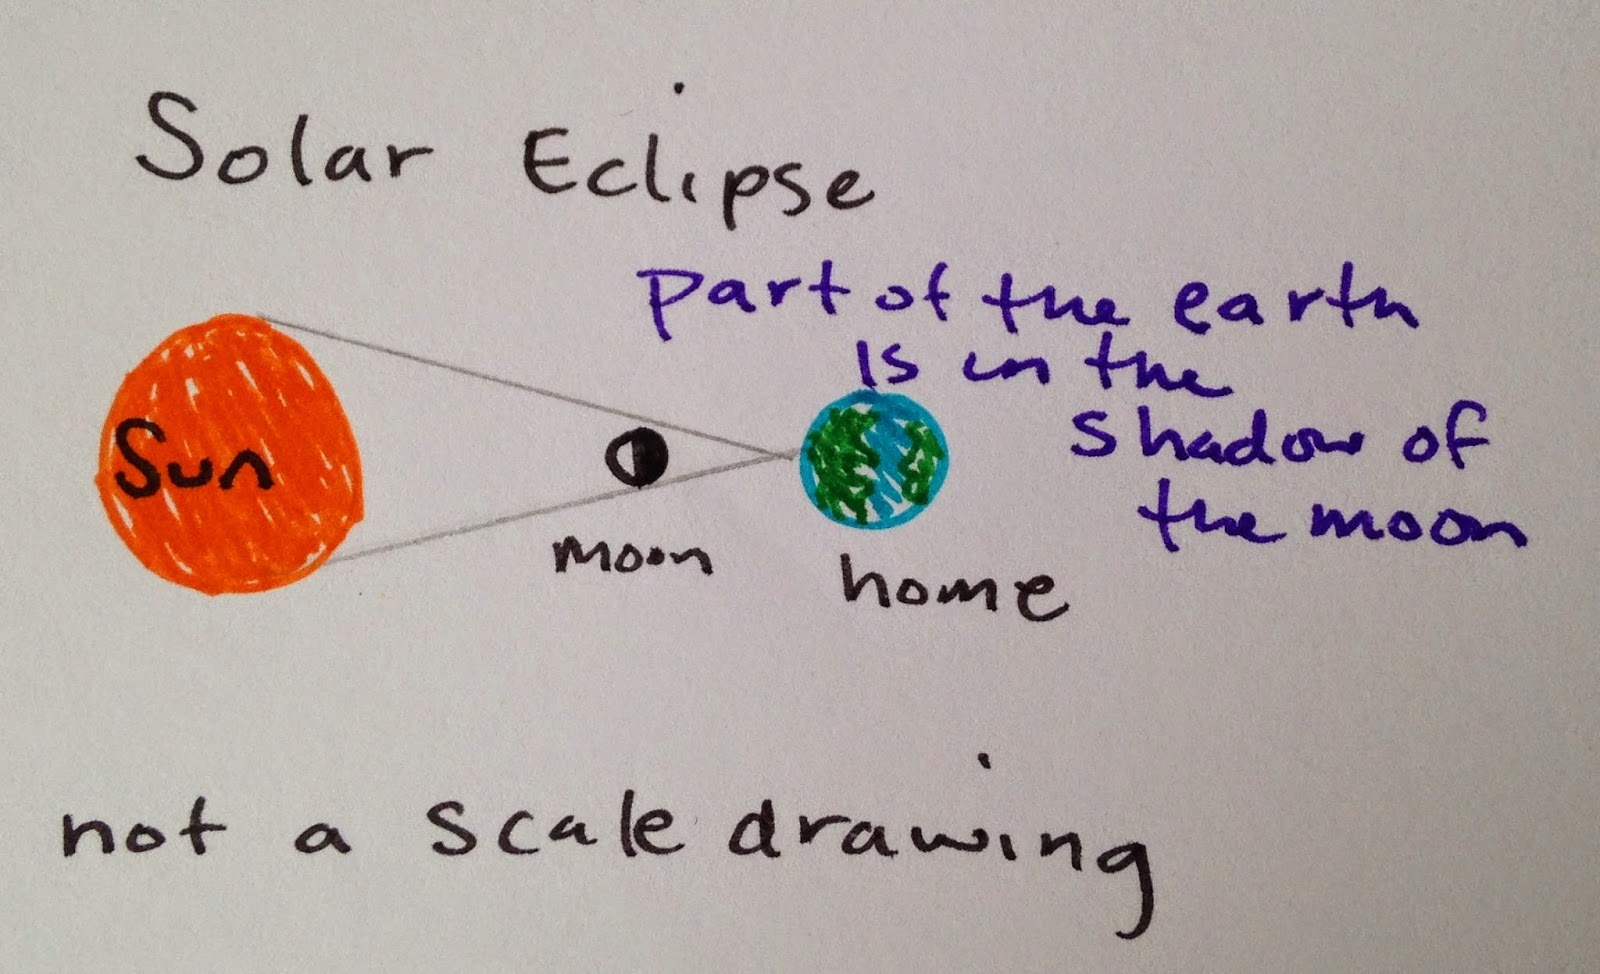 Solar Eclipse
part of the earth
is in the
shadow of
the moon
Sun
moon
home
not a scale drawing